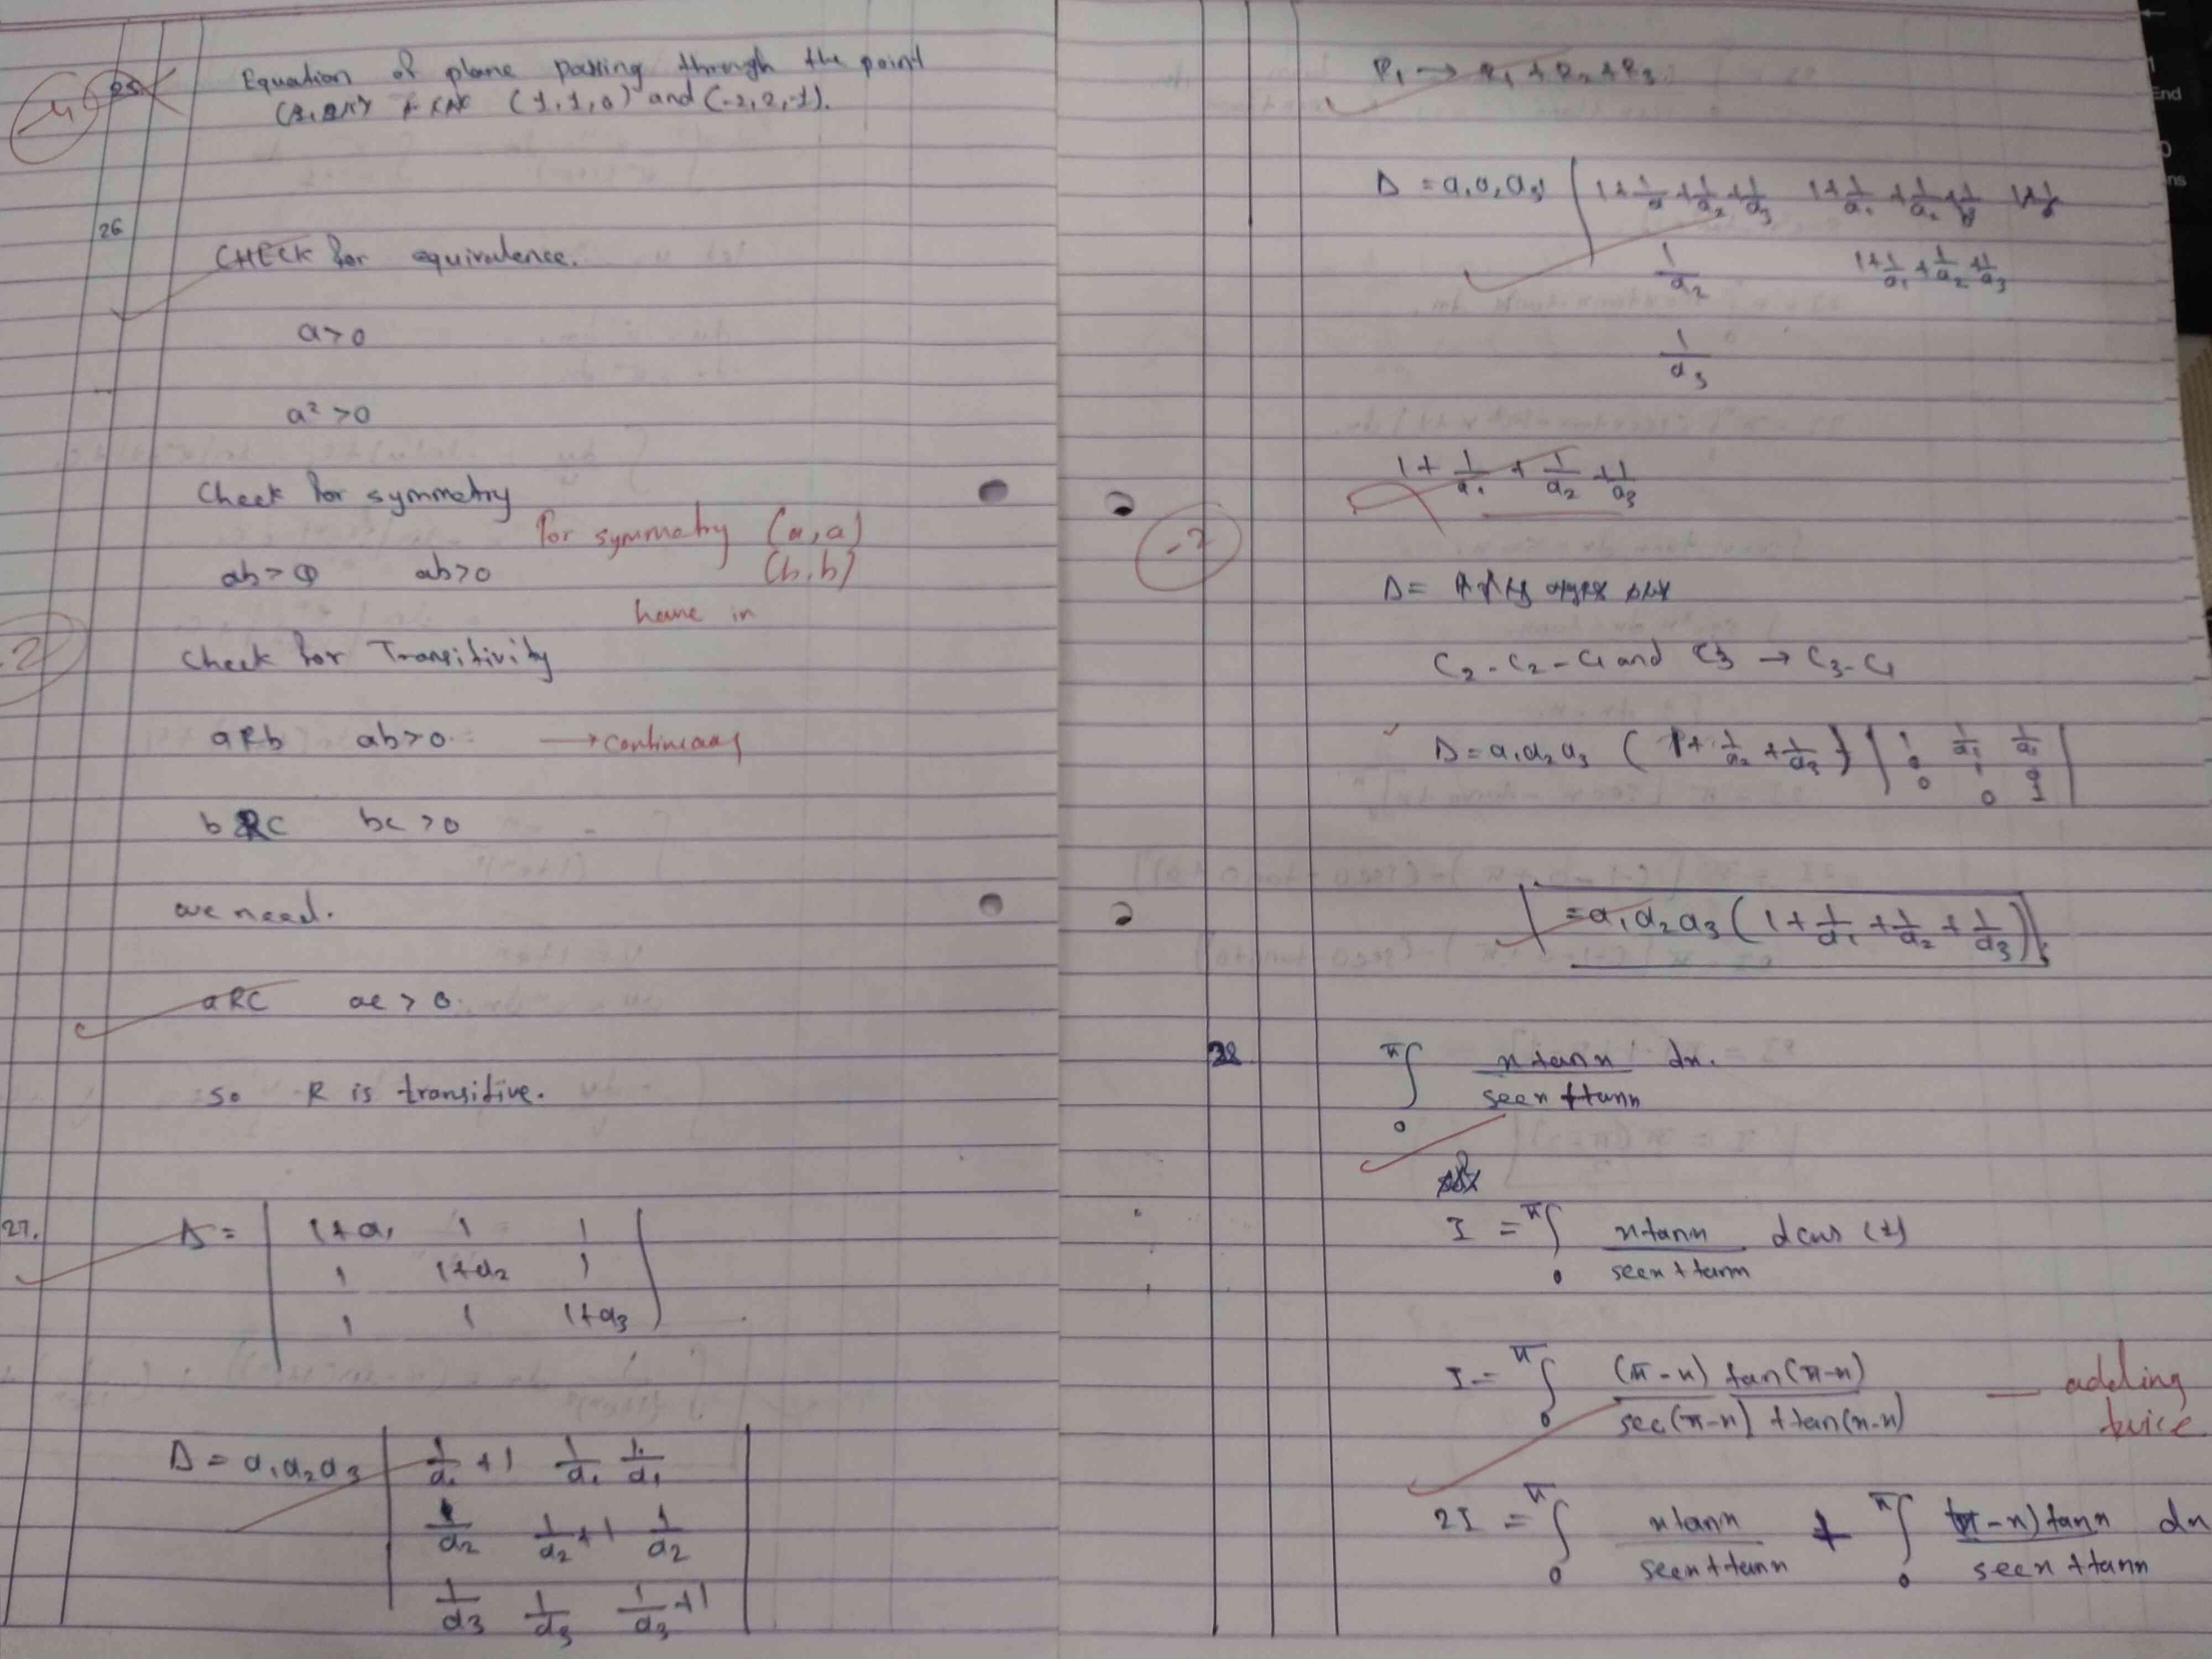 -4
25
Equation of plane passing through the point
(1,1,0) and (-2,2,-1).
26
CHECK for equivalence.
a>0
a² >0
Check for symmetry
for symmetry (a,a)
(b,b)
ab>0 ab>0
have in
2
Check for Transitivity
aRb ab>0. → continuous
bRC bc >0
we need.
aRC ac > 0.
so R is transitive.
27.
Δ = | 1+a₁ 1 1 |
1 1+a₂ 1
1 1 1+a₃
Δ = a₁a₂a₃ | 1/a₁ +1 1/a₁ 1/a₁ |
1/a₂ 1/a₂+1 1/a₂
1/a₃ 1/a₃ 1/a₃+1
R₁ → R₁ + R₂ + R₃
Δ = a₁a₂a₃ | 1+1/a+1/a₂+1/a₃ 1+1/a₁+1/a₂+
1/a₂ 1+1/a₁+1/a₂+1/a₃
1/a₃
1+ 1/a₁ + 1/a₂ +1/a₃
-2
Δ=
C₂-C₂-C₁ and C₃ → C₃-C₁
Δ=a₁a₂a₃ (1+1/a₂+1/a₃) | 1 1/a₁ 1/a₁ |
0 1 0
0 0 1
=a₁a₂a₃(1+1/a₁+1/a₂+1/a₃)
π∫0 x tanx / secx+tanx dx.
I = π∫0 xtanx / secx+tanx
I= π∫0 (π-x) tan(π-x) / sec(π-x) +tan(π-x) — adding
twice
2I = π∫0 xtanx / secx+tanx + π∫0 (π-x)tanx / secx+tanx dx